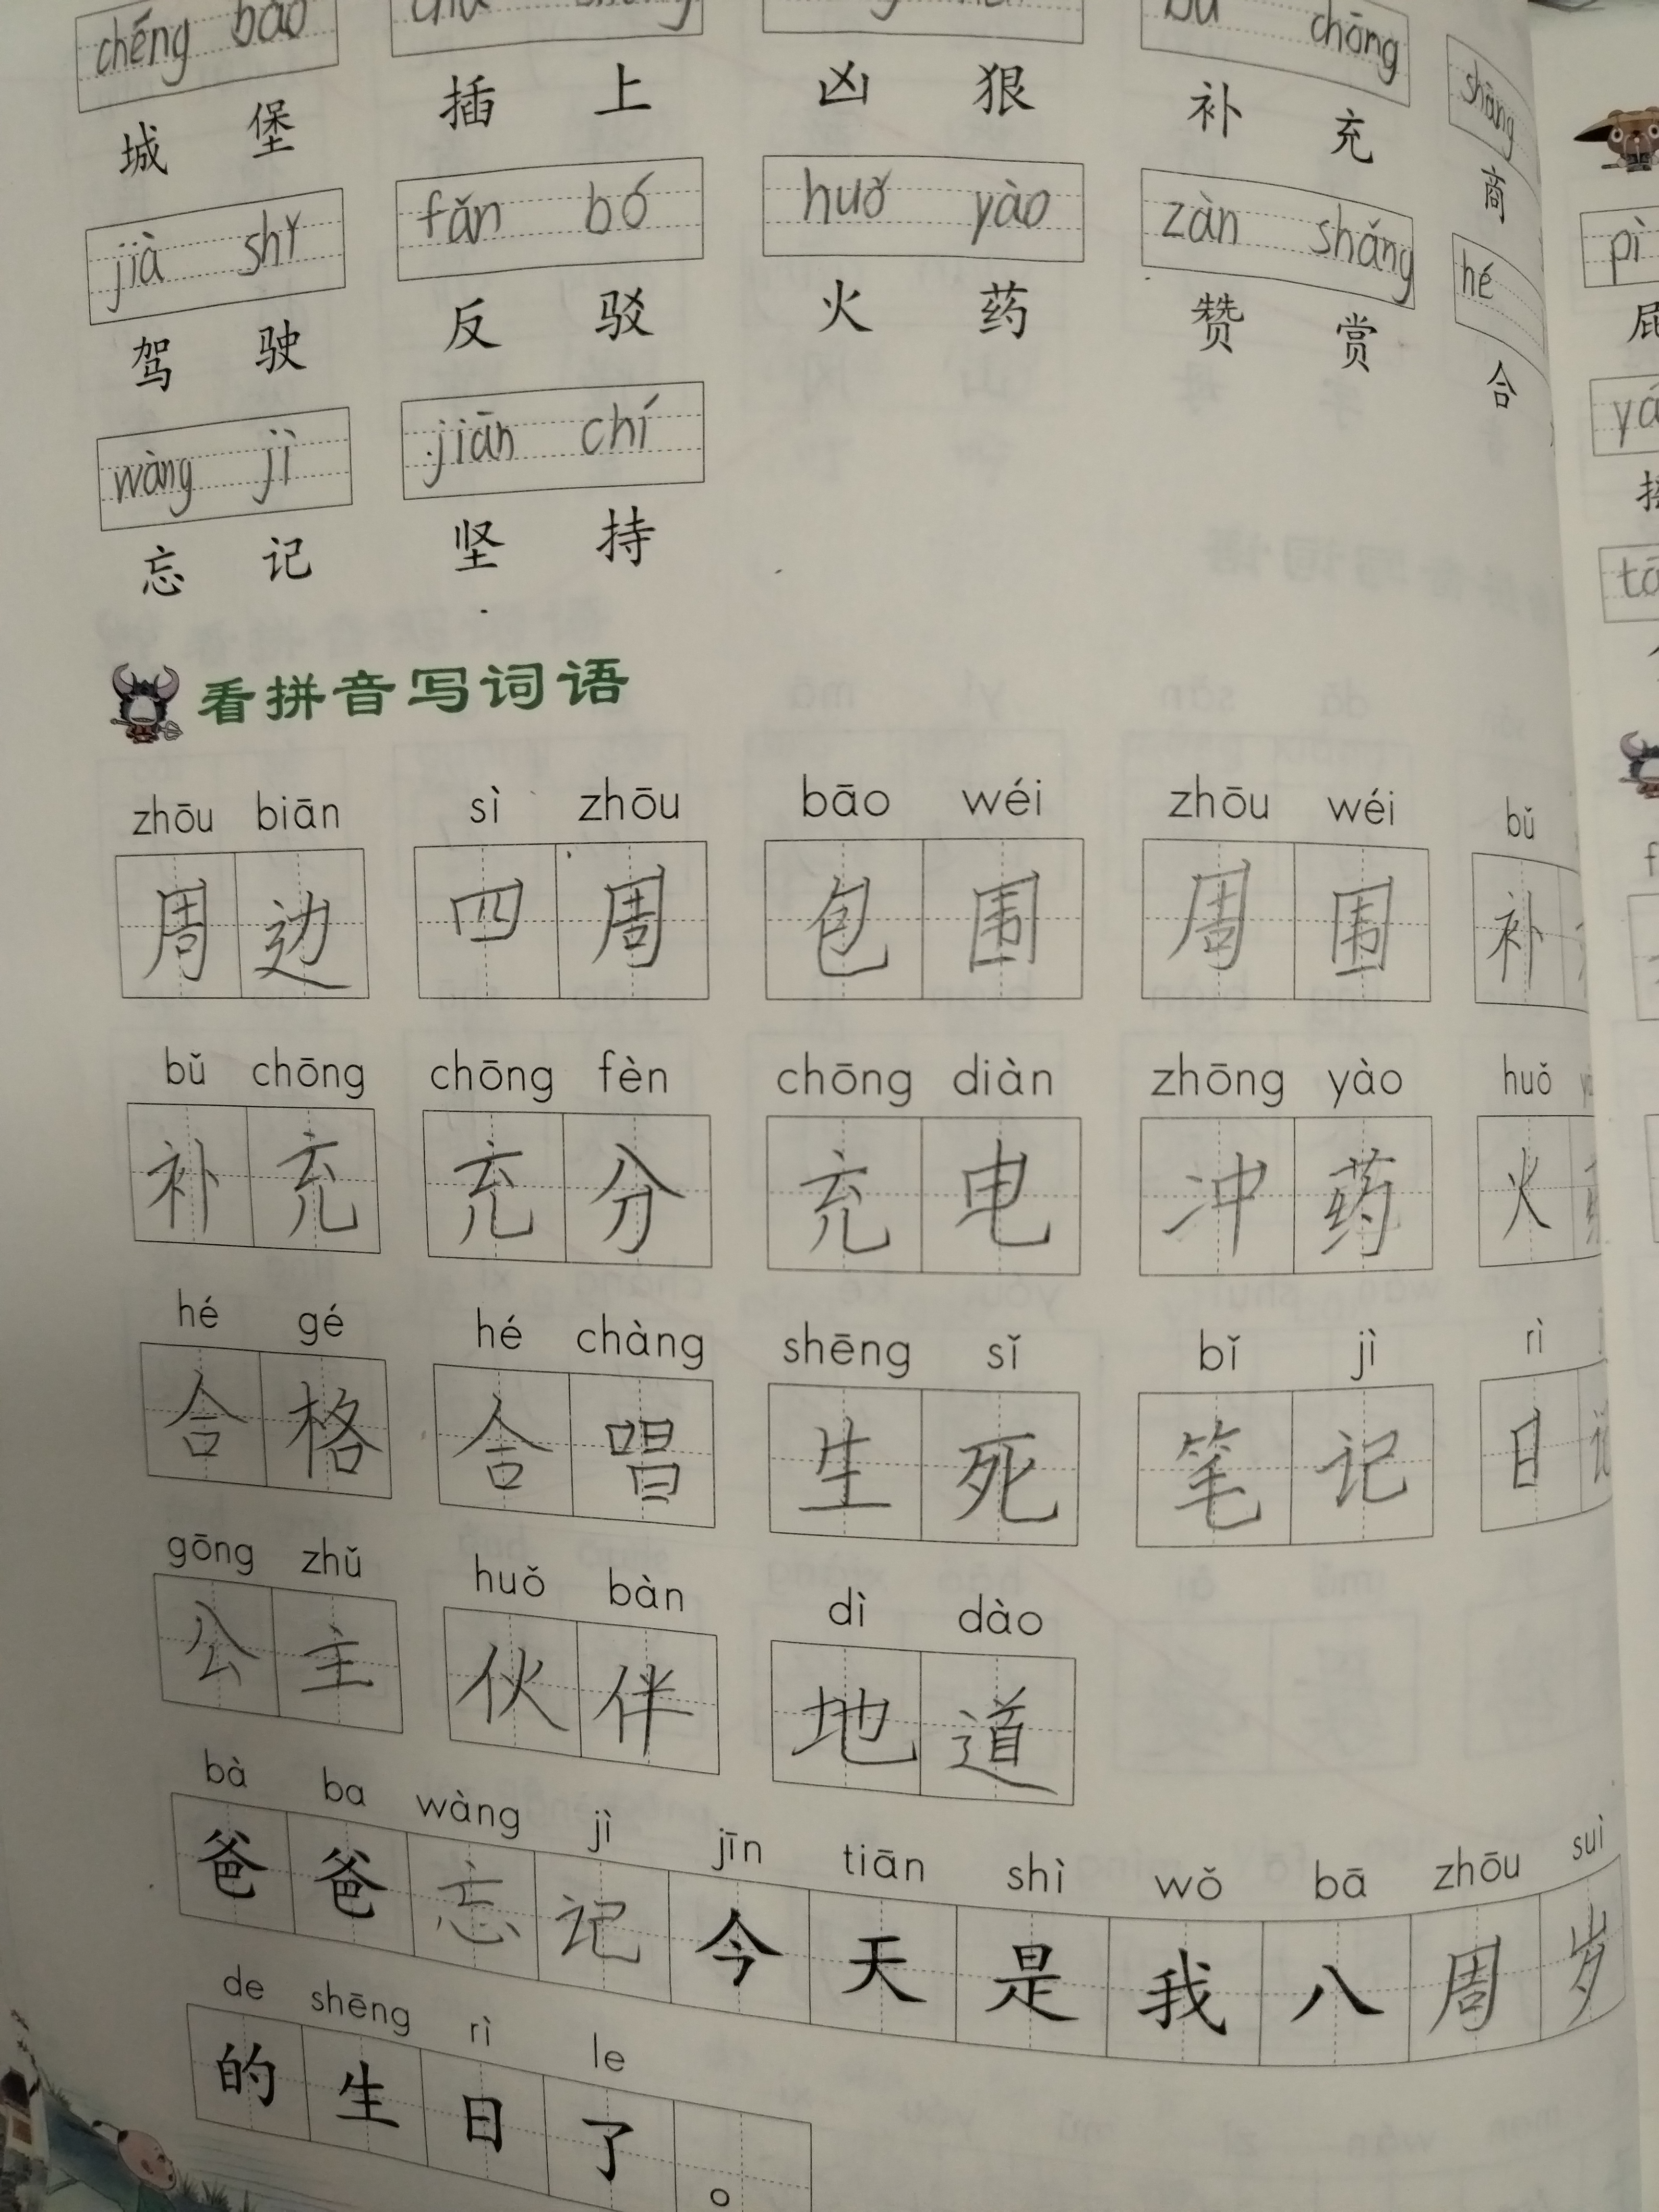 chéng bǎo chōng
城 堡 插 上 凶 狠 补 充 商
jià shǐ fǎn bó huǒ yào zàn shǎng hé
驾 驶 反 驳 火 药 赞 赏 合
wàng jì jiān chí
忘 记 坚 持
看拼音写词语
zhōu biān sì zhōu bāo wéi zhōu wéi bǔ
周 边 四 周 包 围 周 围 补
bǔ chōng chōng fèn chōng diàn zhōng yào huǒ
补 充 充 分 充 电 冲 药 火
hé gé hé chàng shēng sǐ bǐ jì rì
合 格 合 唱 生 死 笔 记 日
gōng zhǔ huǒ bàn dì dào
公 主 伙 伴 地 道
bà ba wàng jì jīn tiān shì wǒ bā zhōu suì
爸 爸 忘 记 今 天 是 我 八 周 岁
de shēng rì le
的 生 日 了 。